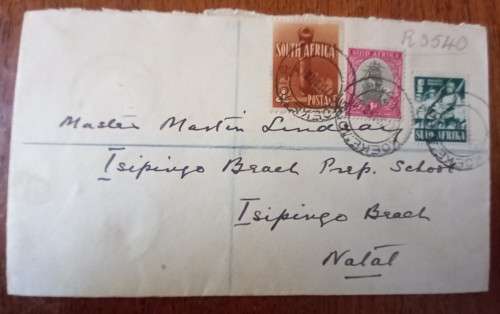 R 3540
SOUTH AFRICA
POSTAGE
SUID-AFRIKA
1D
SUID-AFRIKA
Master Martin Lindsay
Isipingo Beach Prep. School
Isipingo Beach
Natal